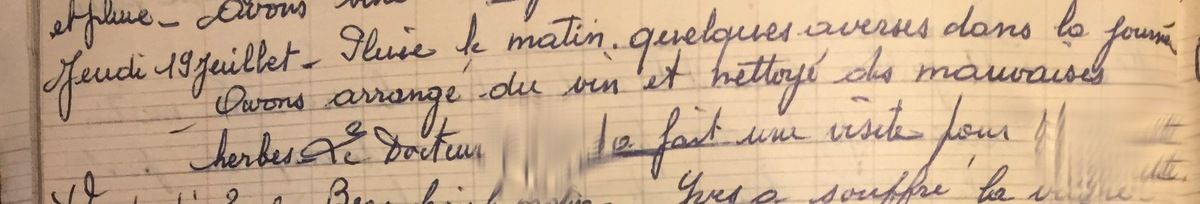 et pluie - Avons
Jeudi 19 Juillet - Pluie le matin. quelques averses dans la journée
Avons arrangé du vin et nettoyé des mauvaises
- herbes - Le Docteur a fait une visite pour
Beau matin. Yves a souffert la